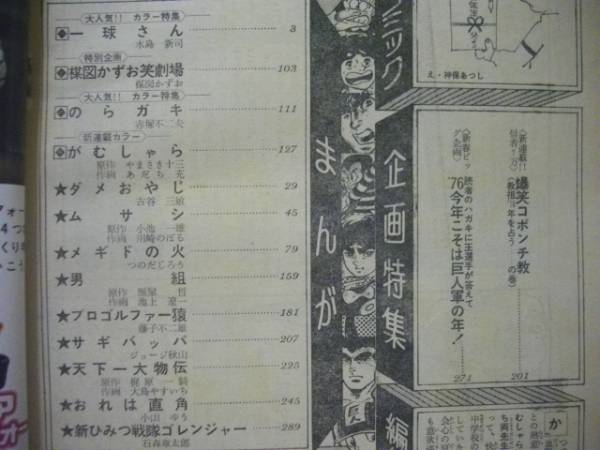 大人気!! カラー特集
◆一球さん 3
水島新司
特別企画
◆楳図かずお笑劇場 103
楳図かずお
大人気!! カラー特集
◆のらガキ 111
赤塚不二夫
新連載カラー
◆がむしゃら 127
原作 やまさき十三
作画 あだち充
★ダメおやじ 29
古谷三敏
★ムサシ 45
原作 小池一雄
作画 川崎のぼる
★メギドの火 79
つのだじろう
★男組 159
原作 雁屋哲
作画 池上遼一
★プロゴルファー猿 181
藤子不二雄
★サギバッバ 207
ジョージ秋山
★天下一大物伝 225
原作 梶原一騎
作画 大島やすいち
★おれは直角 245
小山ゆう
★新ひみつ戦隊ゴレンジャー 289
石森章太郎
まんが
ミック
企画特集
編
え・神保あつし
〈新連載!!
爆笑コポンチ教
201
〈新春ビッグ企画〉
読者のハガキに王選手が答えて
'76今年こそは巨人軍の年!
271